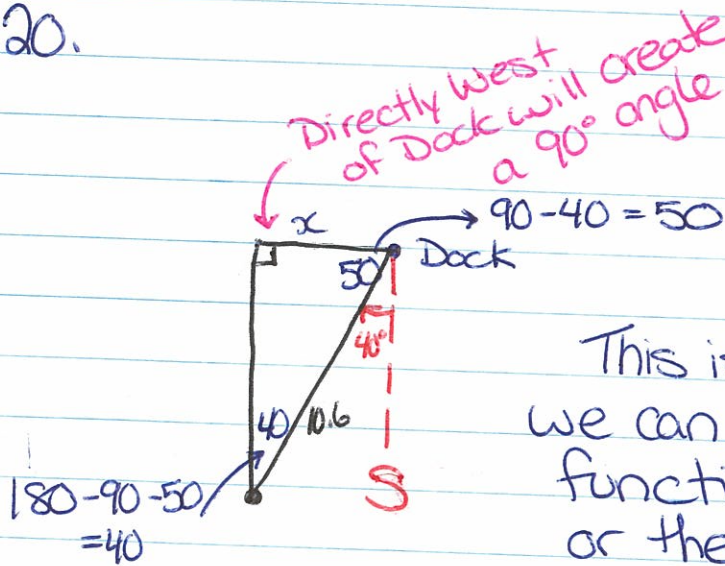 20.
Directly West
of Dock will create
a 90° angle
x
90-40 = 50
50
Dock
40°
40
10.6
S
180-90-50
=40
This i
we can
functi
or the